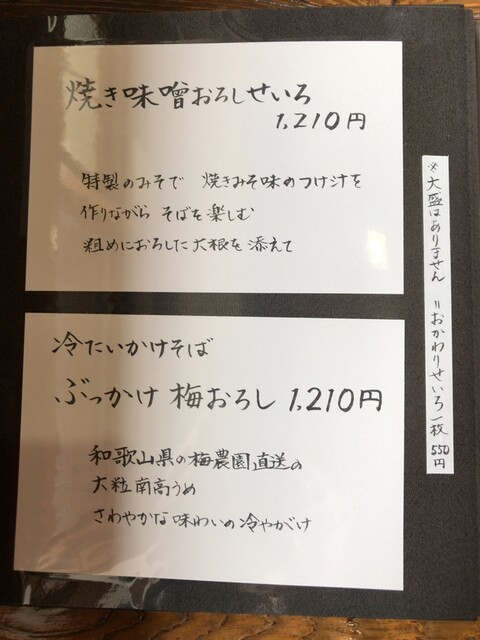 焼き味噌おろしせいろ
1,210円
特製のみそで 焼きみそ味のつけ汁を
作りながら そばを楽しむ
粗めにおろした大根を添えて
冷たいかけそば
ぶっかけ 梅おろし 1,210円
和歌山県の梅農園直送の
大粒南高うめ
さわやかな味わいの冷やがけ
※大盛はありません =おかわりせいろ一枚 550円